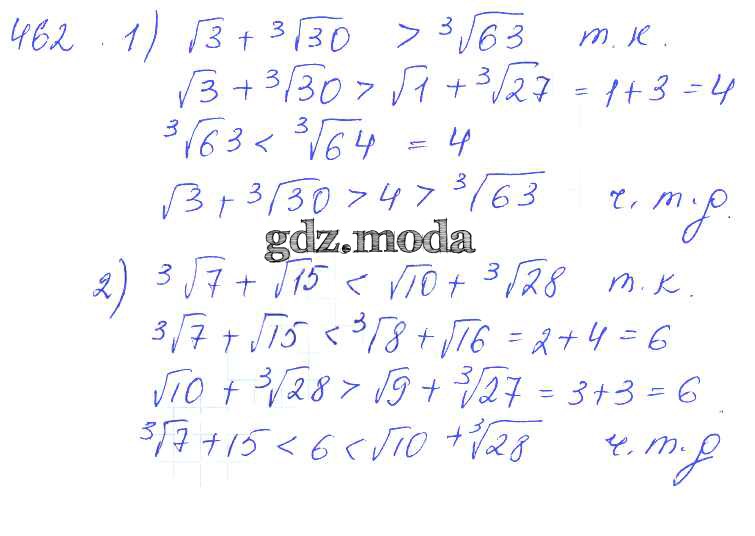 462. 1) √3 + ³√30 > ³√63 т.к.
√3 + ³√30 > √1 + ³√27 = 1+3 = 4
³√63 < ³√64 = 4
√3 + ³√30 > 4 > ³√63 ч.т.д.
gdz.moda
2) ³√7 + √15 < √10 + ³√28 т.к.
³√7 + √15 < ³√8 + √16 = 2+4 = 6
√10 + ³√28 > √9 + ³√27 = 3+3 = 6
³√7 + 15 < 6 < √10 + ³√28 ч.т.д